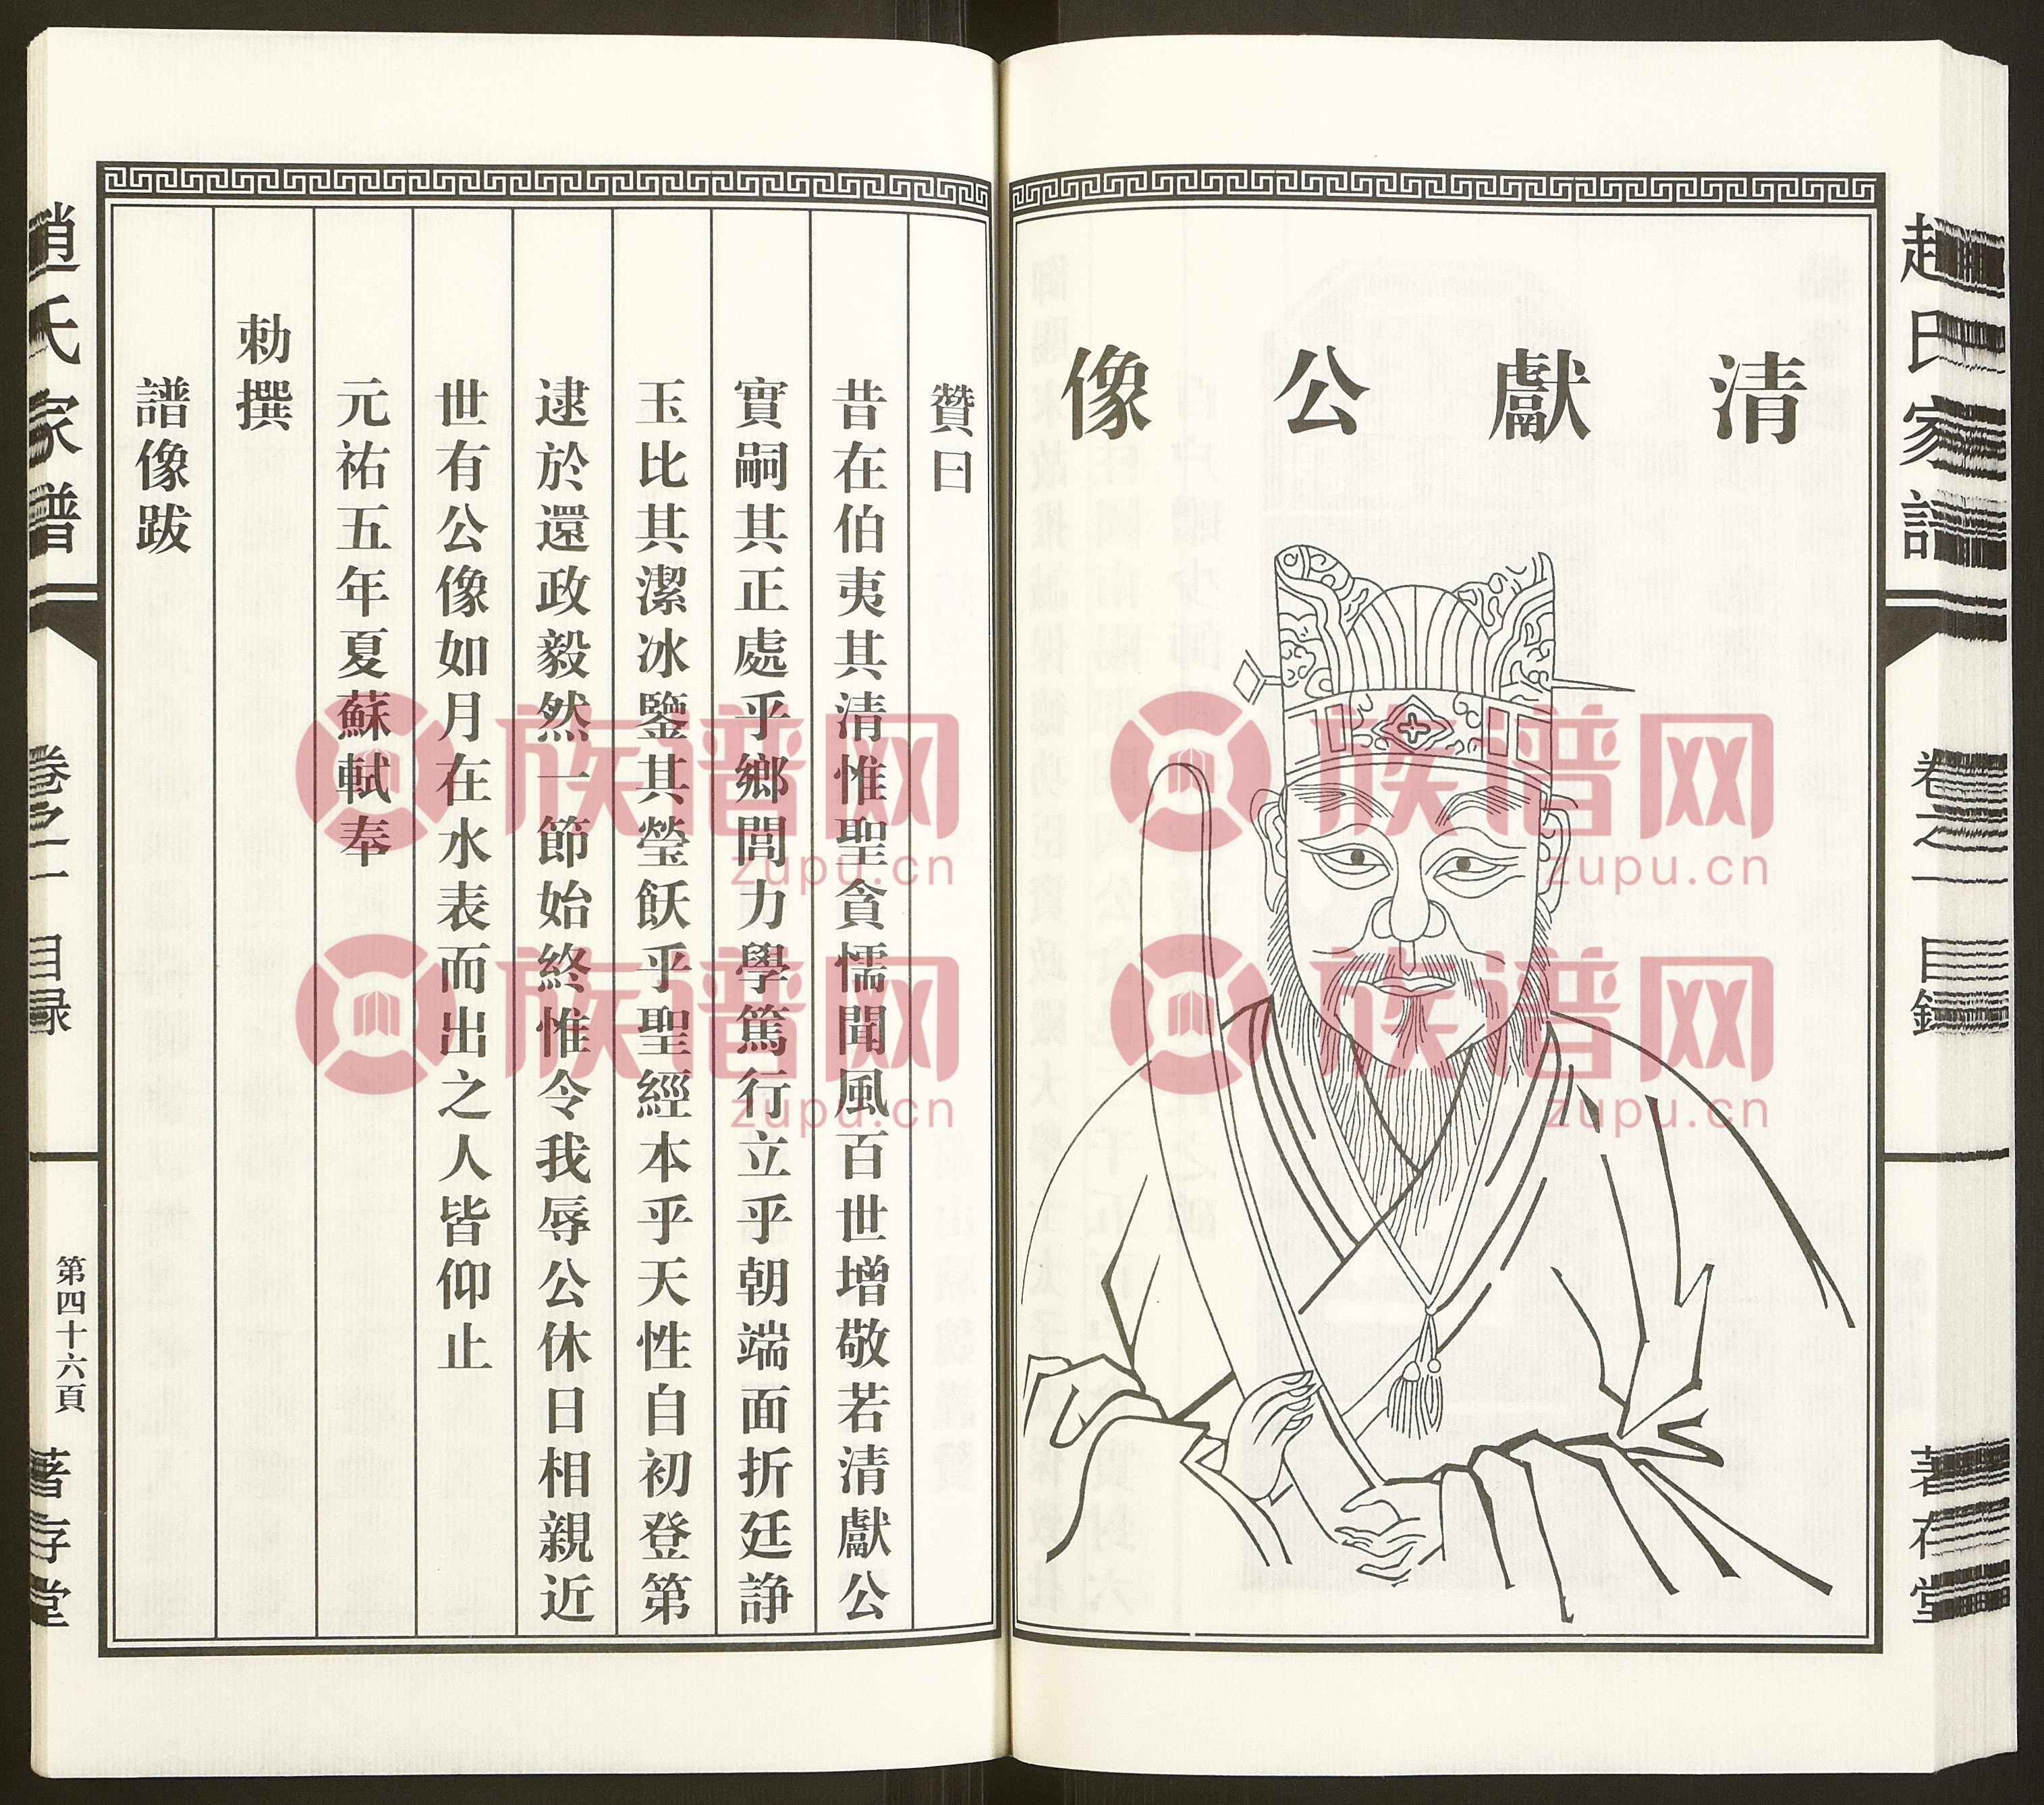 趙氏家譜
卷之一
目錄
著存堂
清獻公像
贊曰
昔在伯夷其清惟聖貪懦聞風百世增敬若清獻公
實嗣其正處乎鄉閭力學篤行立乎朝端面折廷諍
玉比其潔冰鑒其瑩飫乎聖經本乎天性自初登第
逮於還政毅然一節始終惟令我辱公休日相親近
世有公像如月在水表而出之人皆仰止
元祐五年夏蘇軾奉
勅撰
譜像跋
趙氏家譜
卷之一
目録
第四十六頁
著存堂
族谱网
zupu.cn
族谱网
zupu.cn
族谱网
zupu.cn
族谱网
zupu.cn